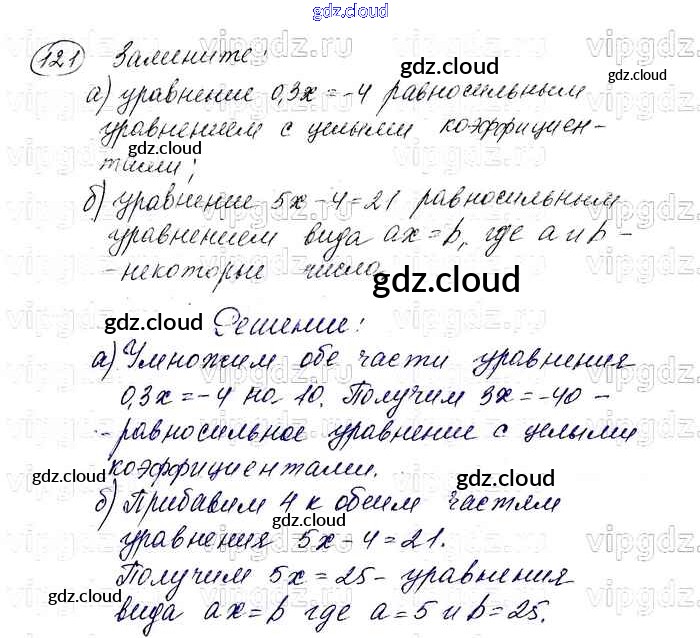 gdz.cloud
121 Замените:
а) уравнение 0,3x = -4 равносильным
уравнением с целыми коэффициен-
тами;
б) уравнение 5x - 4 = 21 равносильным
уравнением вида ax = b, где a и b -
- некоторые числа.
Решение:
а) Умножим обе части уравнения
0,3x = -4 на 10. Получим 3x = -40 -
- равносильное уравнение с целыми
коэффициентами.
б) Прибавим 4 к обеим частям
уравнения 5x - 4 = 21.
Получим 5x = 25 - уравнения
вида ax = b где a = 5 и b = 25.
gdz.cloud
gdz.cloud
gdz.cloud
gdz.cloud
gdz.cloud
gdz.cloud
gdz.cloud
gdz.cloud
gdz.cloud